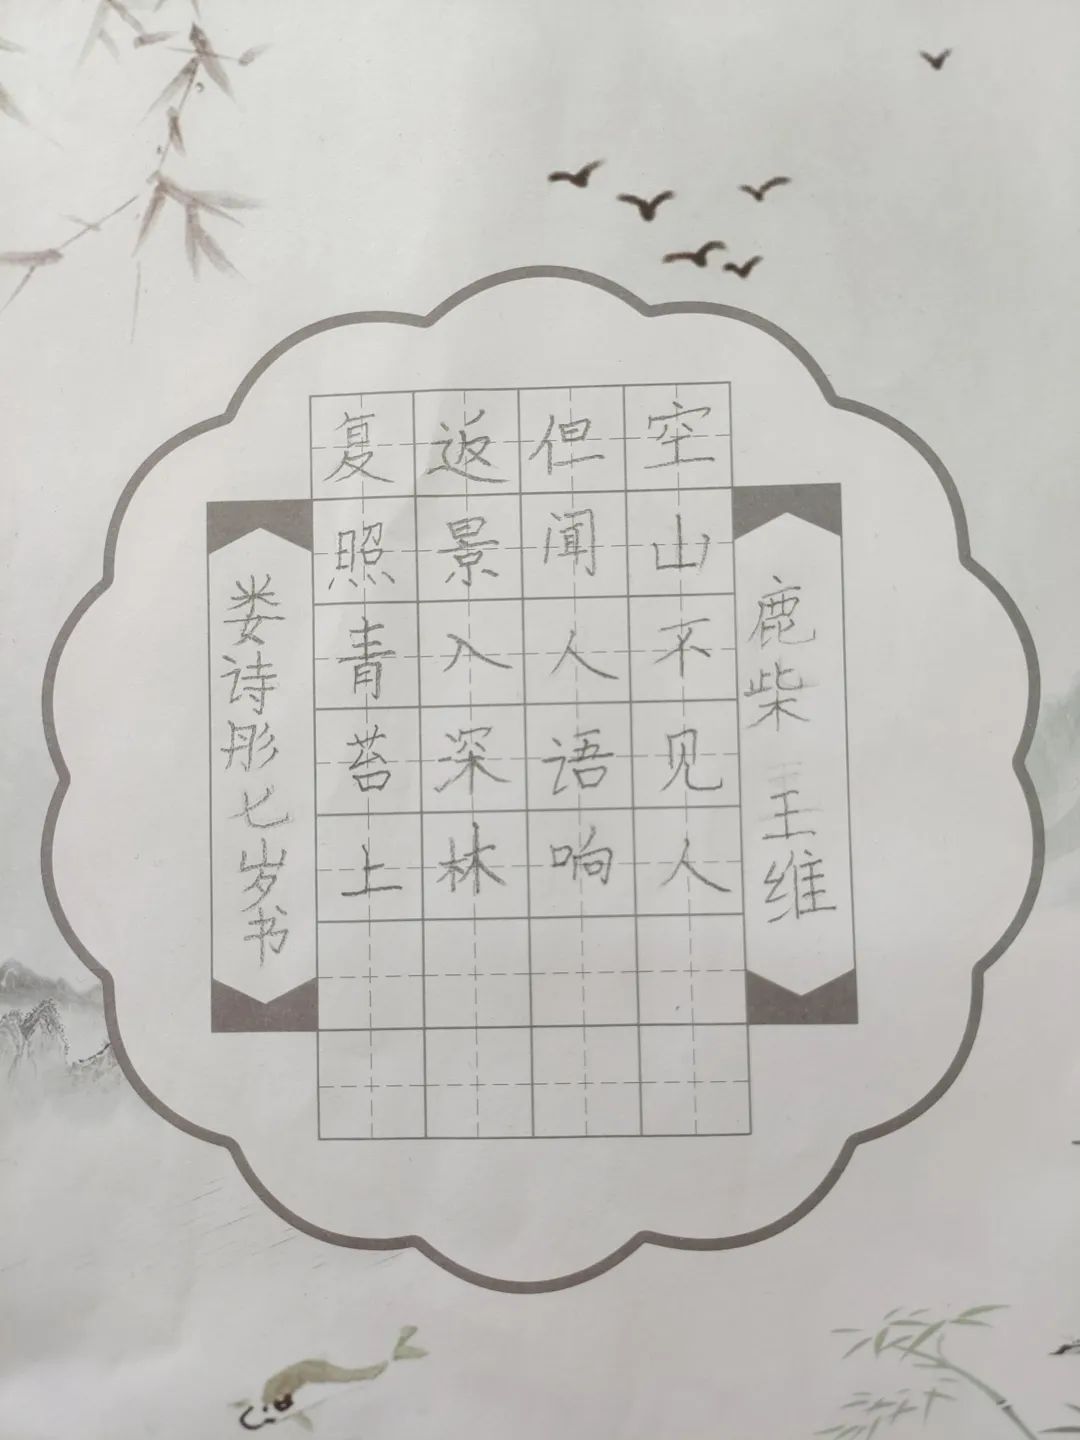 鹿柴 王维
空山不见人
但闻人语响
返景入深林
复照青苔上
娄诗彤七岁书